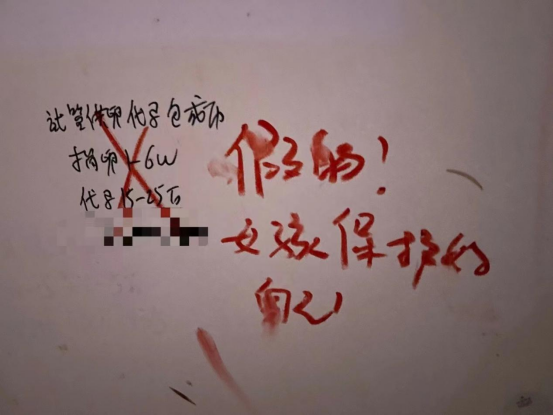 试管供卵代孕包成功
捐卵1-6W
代孕15-25万
假的!
女孩保护好
自己